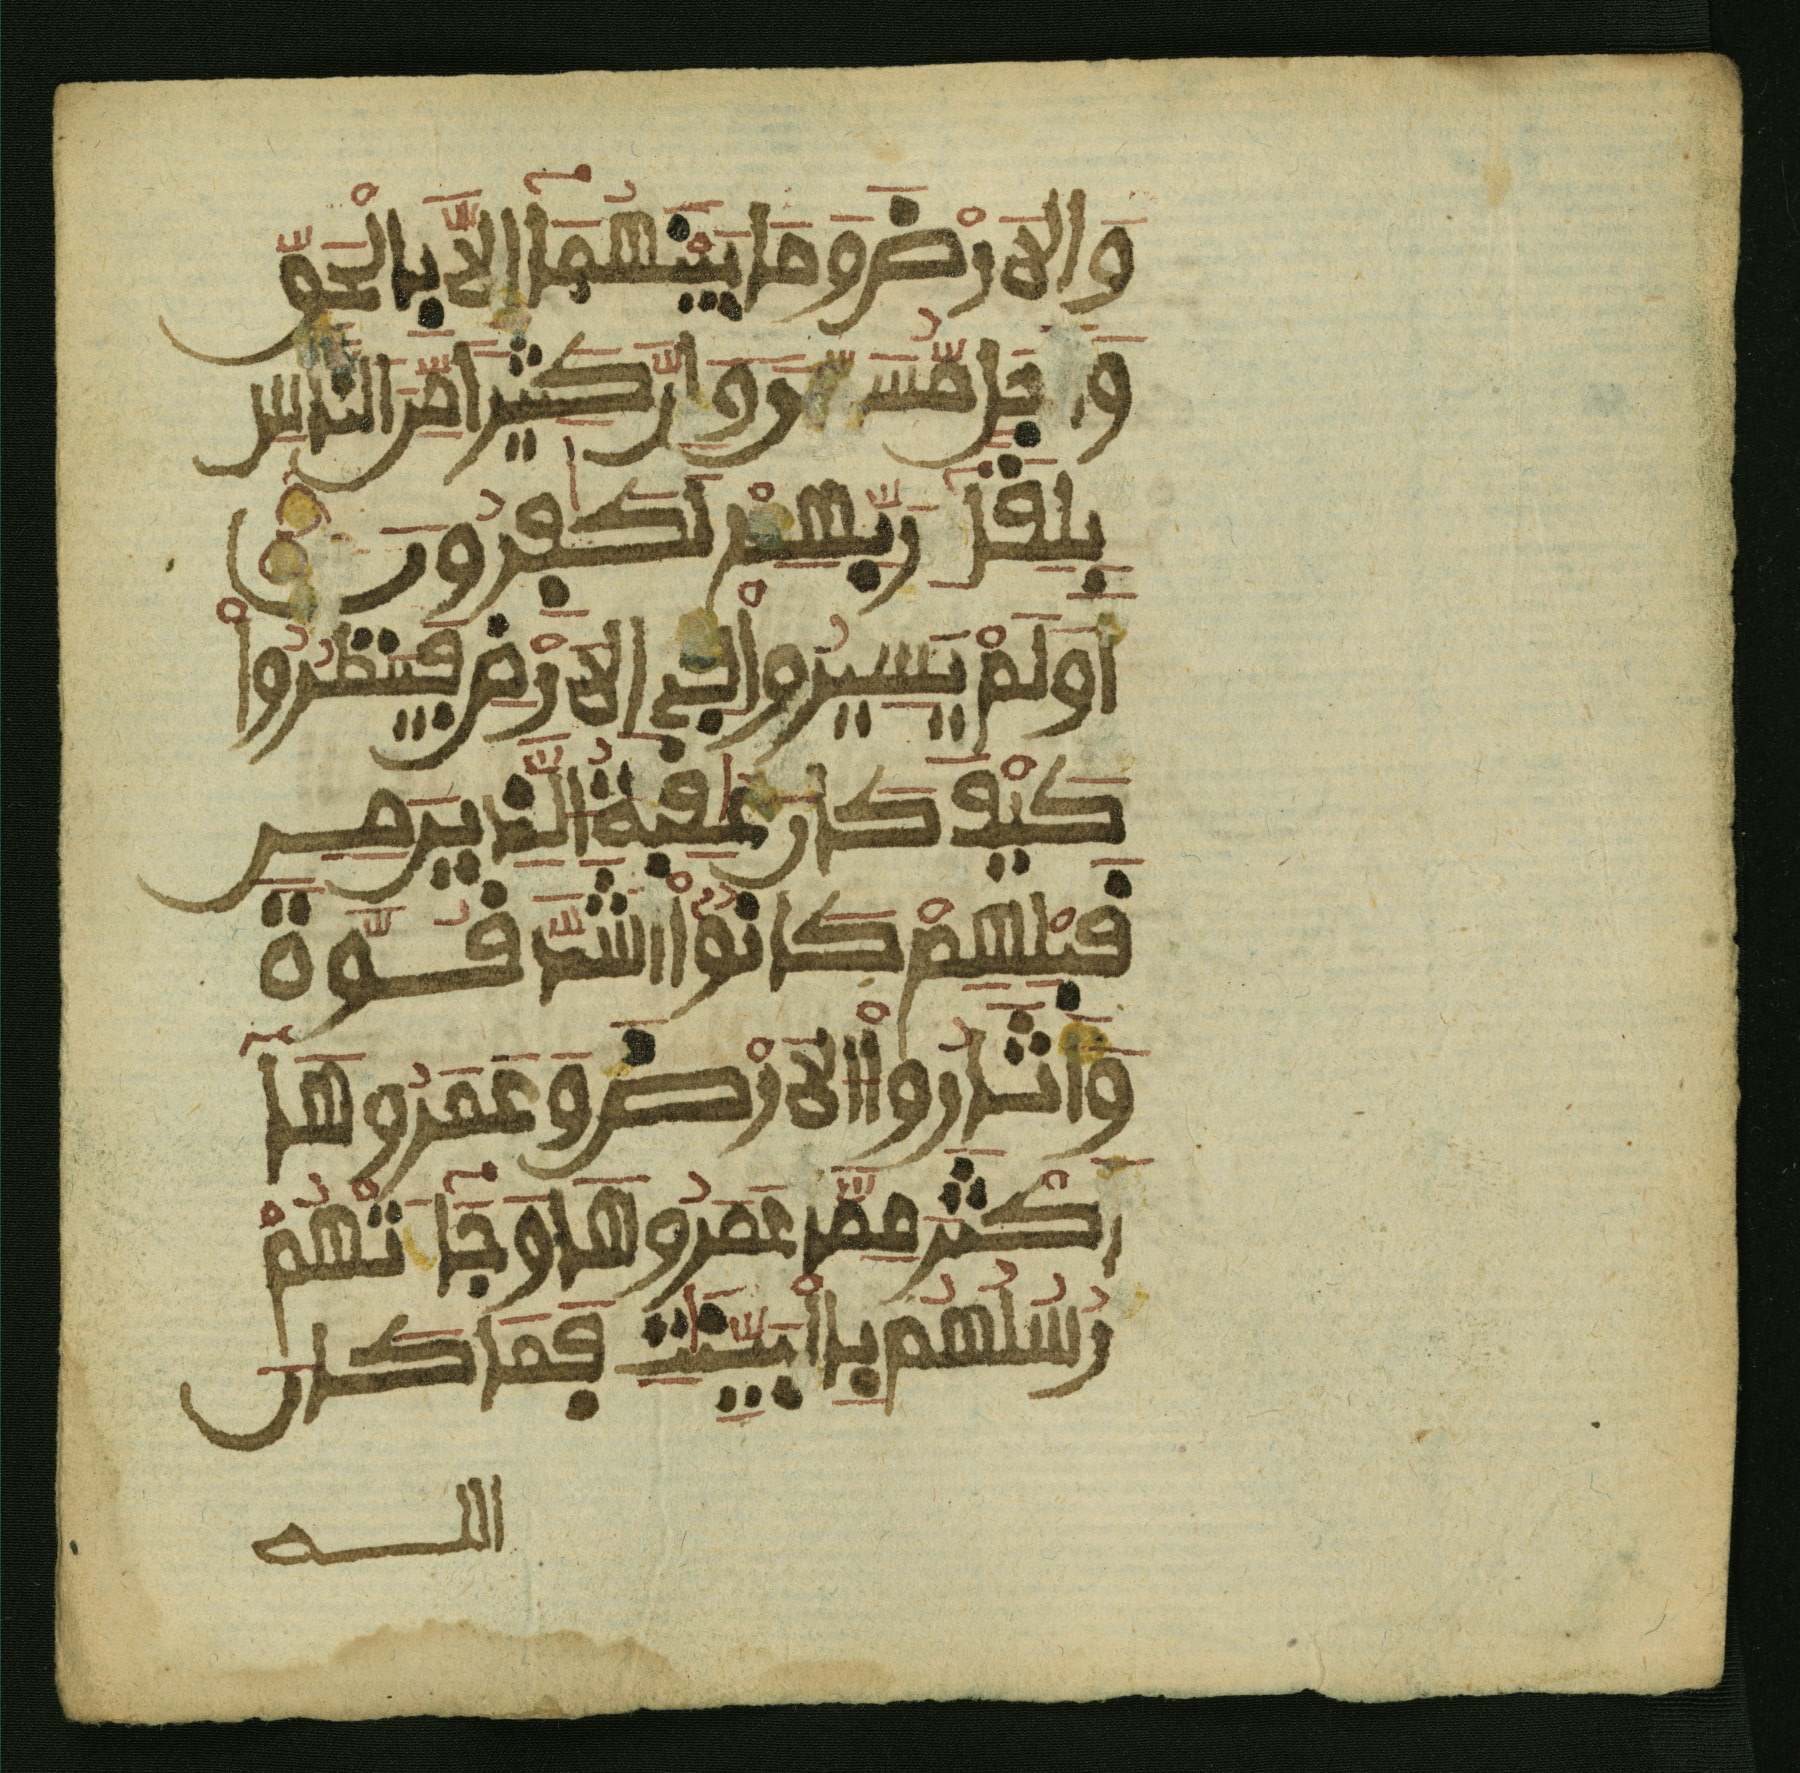 وَالاَرْضَ وَمَا بَيْنَهُمَآ إِلَّا بِالْحَقِّ
وَأَجَلٍ مُّسَمًّى وَإِنَّ كَثِيرًا مِّنَ النَّاسِ
بِلِقَآءِ رَبِّهِمْ لَكَٰفِرُونَ
أَوَلَمْ يَسِيرُواْ فِي الاَرْضِ فَيَنظُرُواْ
كَيْفَ كَانَ عَٰقِبَةُ الَّذِينَ مِن
قَبْلِهِمْ كَانُوٓاْ أَشَدَّ قُوَّةً
وَأَثَارُواْ الاَرْضَ وَعَمَرُوهَآ
أَكْثَرَ مِمَّا عَمَرُوهَا وَجَآءَتْهُمْ
رُسُلُهُم بِالْبَيِّنَٰتِ فَمَا كَانَ
الله